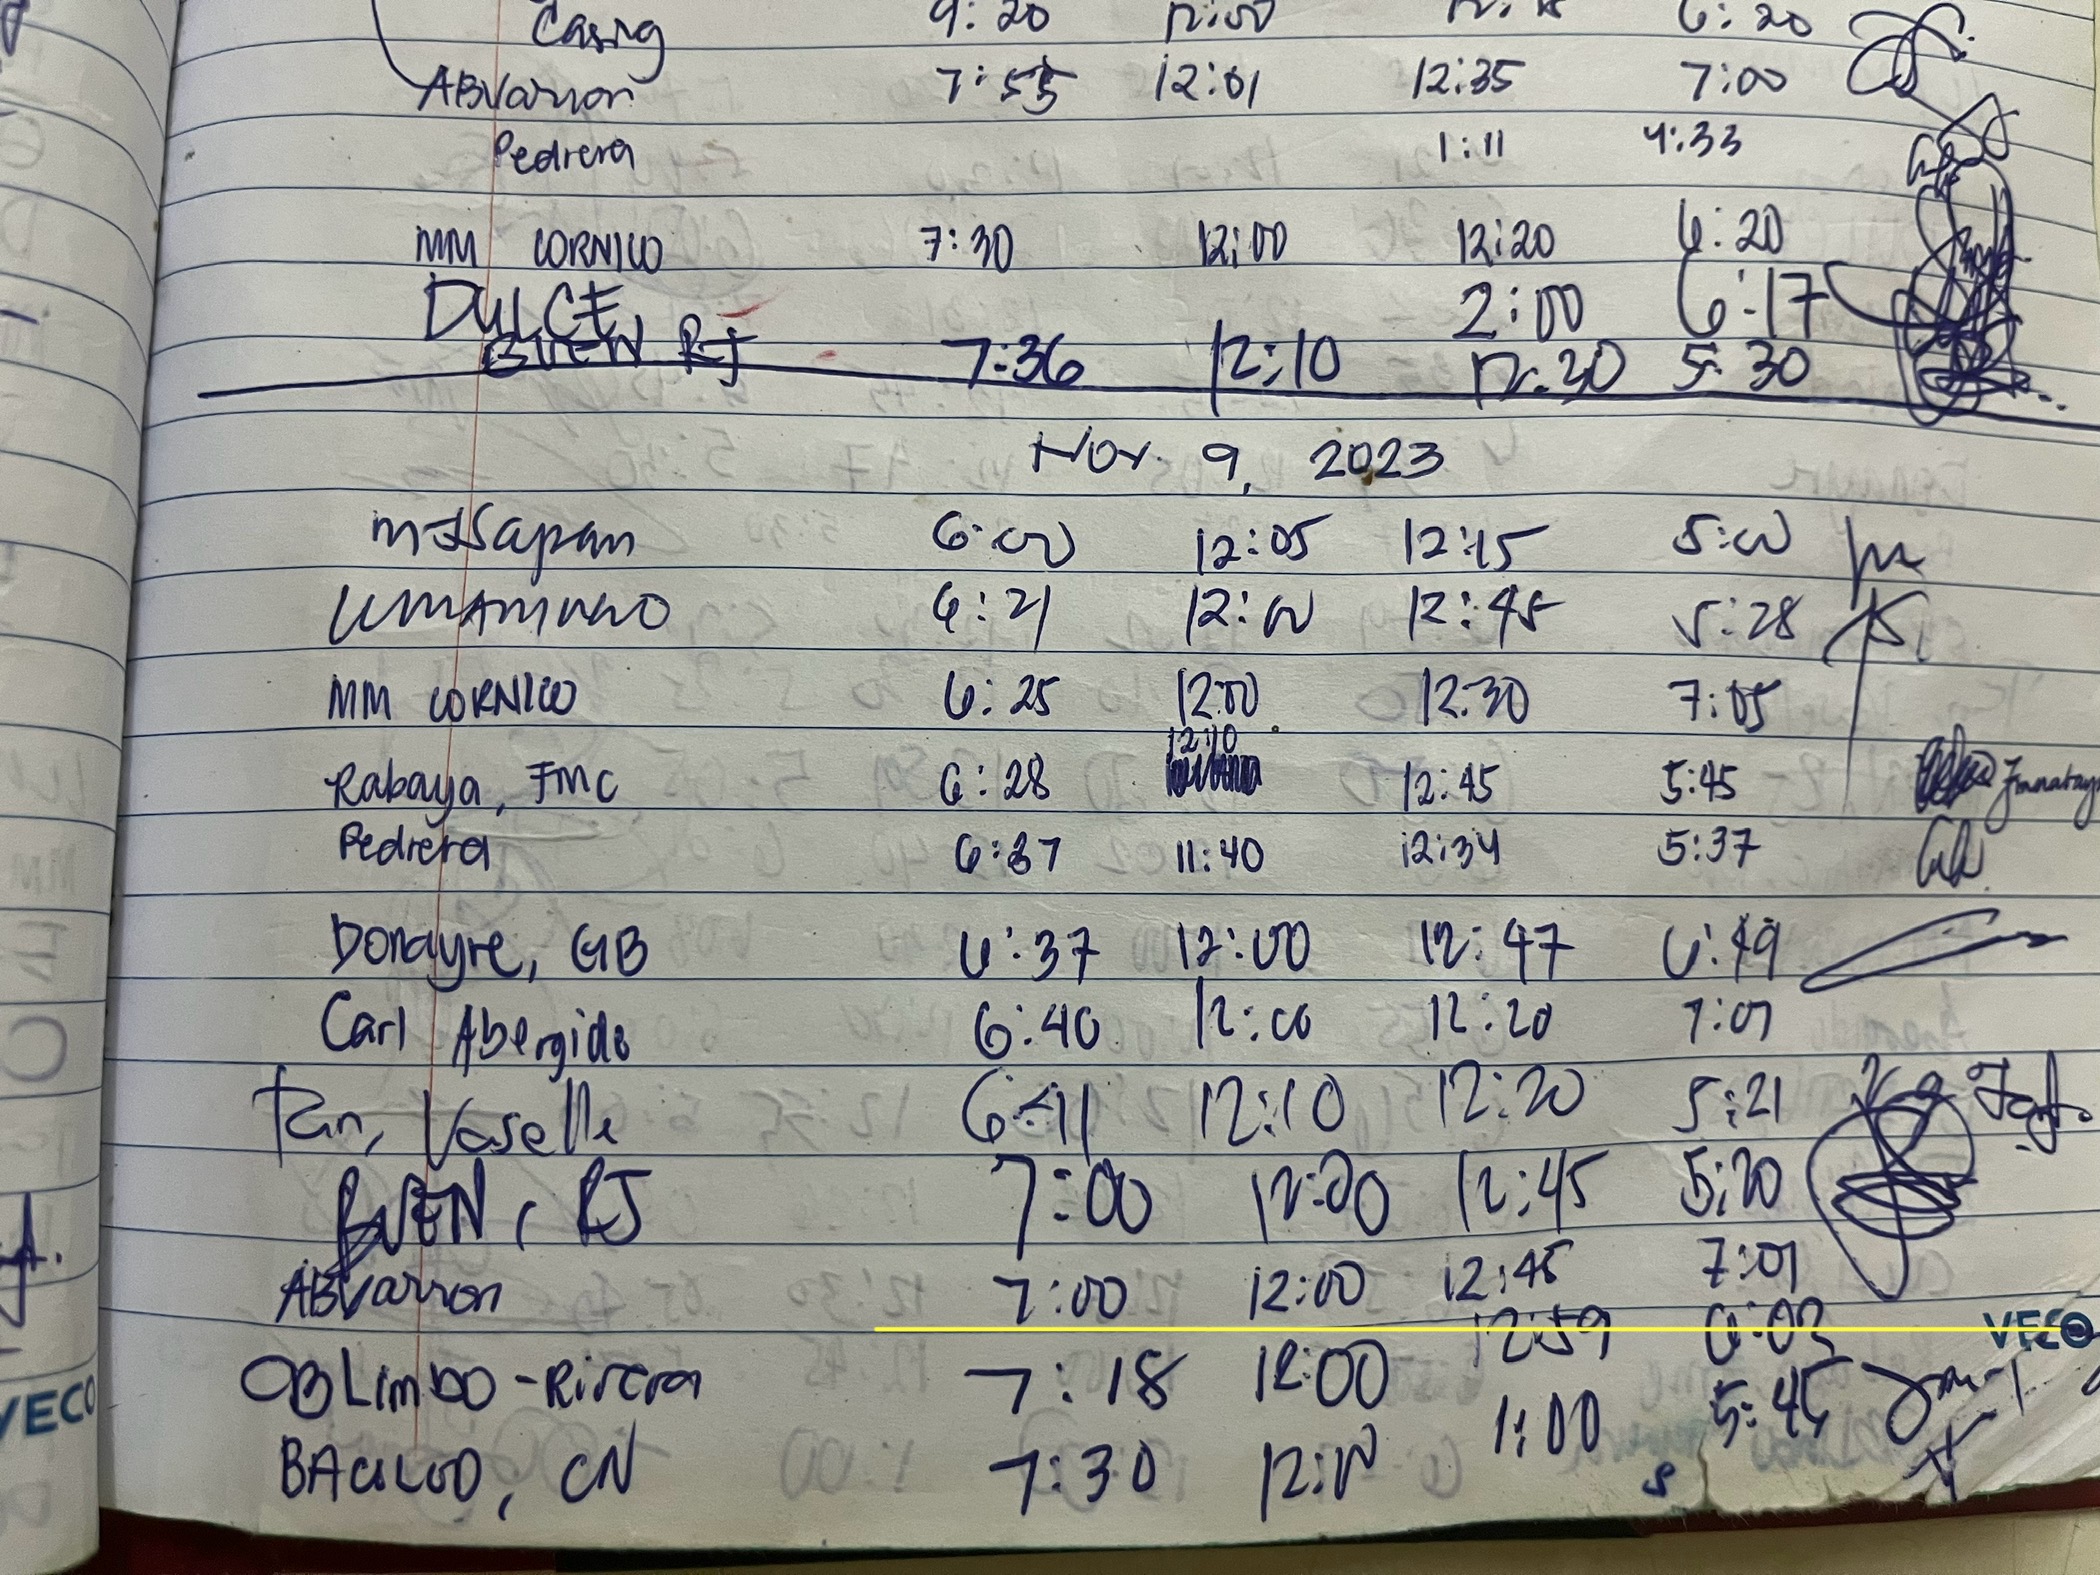 Casing 9:20 12:00 6:20
ABVarron 7:55 12:01 12:35 7:00
Pedrera 1:11 4:33
MM CORNICO 7:30 12:00 12:20 6:20
DULCE 2:00 6:17
BUEN RJ 7:36 12:10 12:30 5:30
Nov. 9, 2023
6:00 12:05 12:15 5:00
6:21 12:00 12:45 5:28
MM CORNICO 6:25 12:00 12:30 7:05
12:10
Rabaya, FMC 6:28 12:45 5:45
Pedrera 6:37 11:40 12:34 5:37
Donayre, GB 6:37 12:00 12:47 6:49
Carl Abergido 6:40 12:00 12:20 7:01
Tan, Voselle 6:41 12:10 12:20 5:21
BUEN, RJ 7:00 12:00 12:45 5:20
ABVarron 7:00 12:00 12:45 7:01
12:59 6:02 VECO
OBLimbo-Rivera 7:18 12:00
VECO 1:00 5:45
BACULOD, CN 7:30 12:00